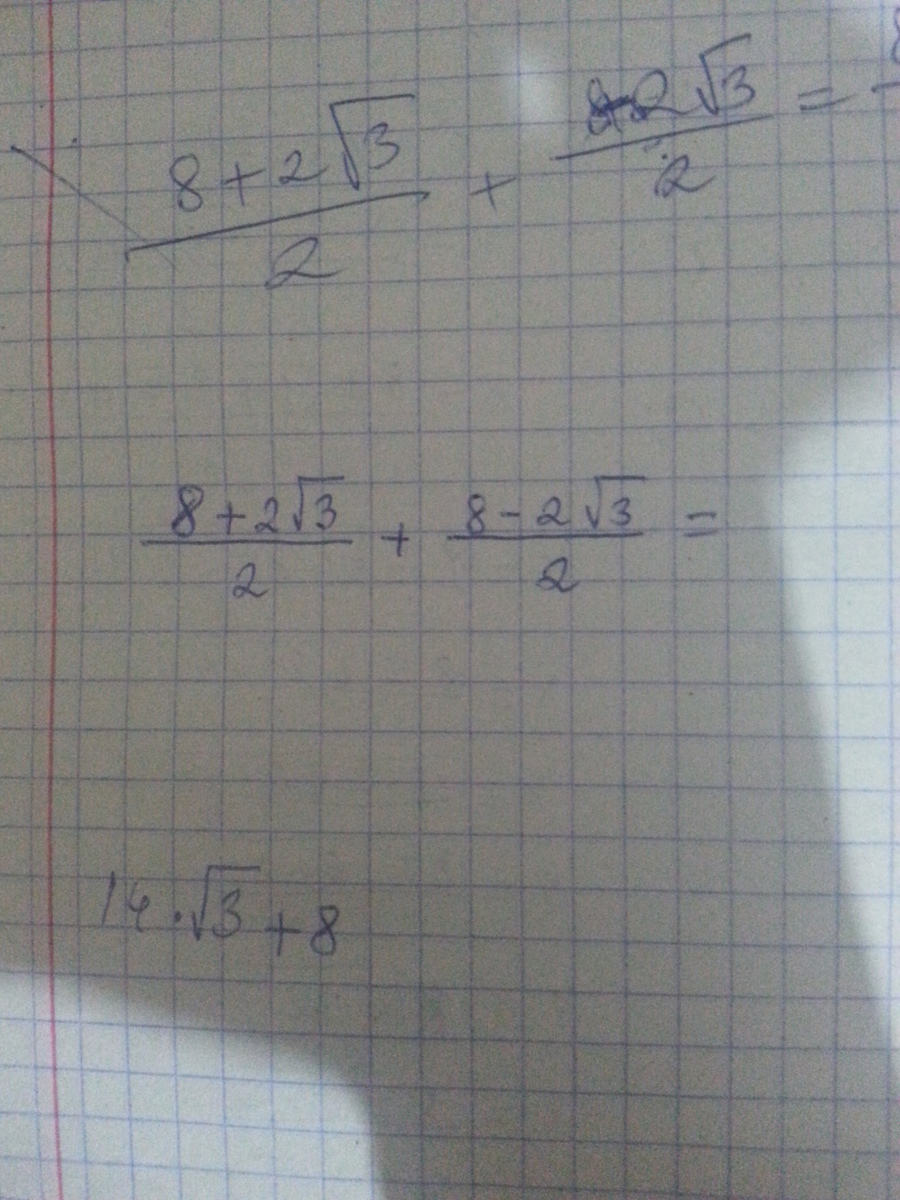 8+2√3/2 + 2√3/2 =
8+2√3/2 + 8-2√3/2 =
14·√3+8